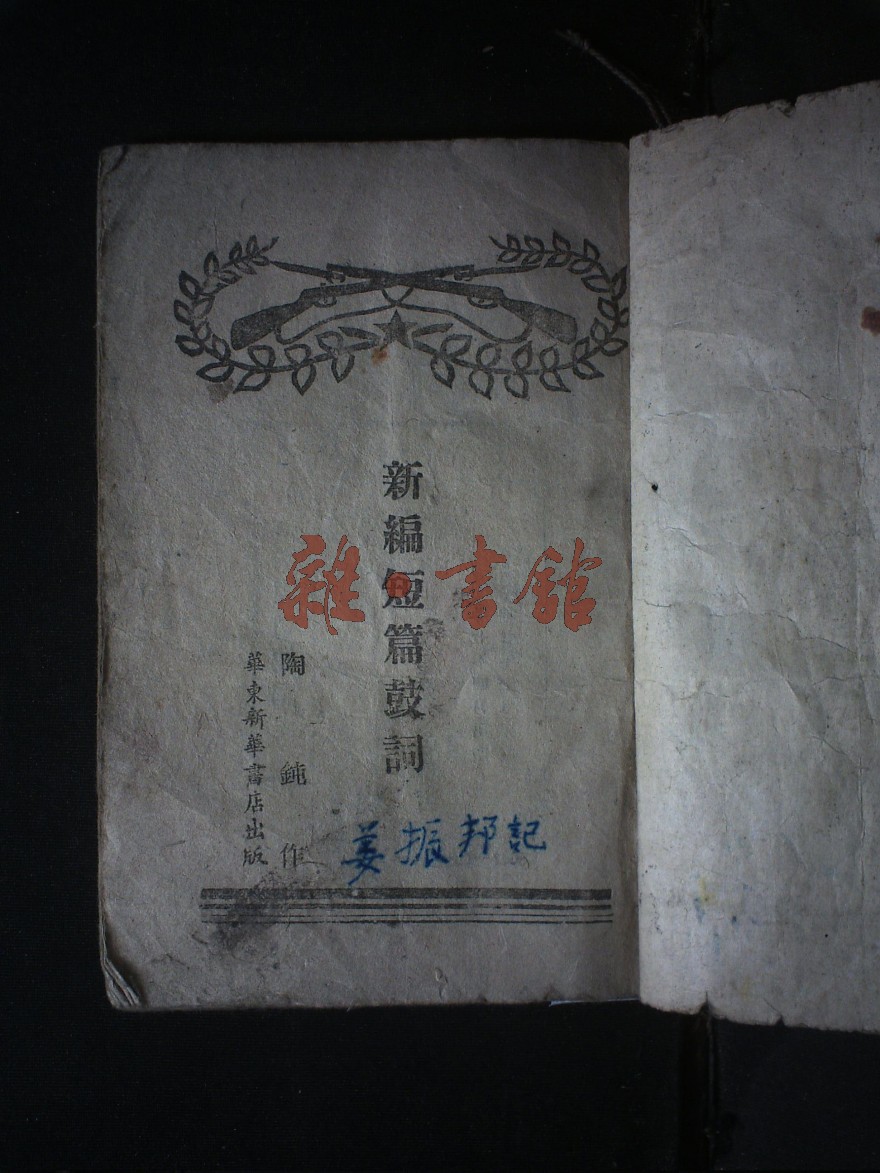 新編短篇鼓詞
陶鈍作
華東新華書店出版
姜振邦記
雜書館